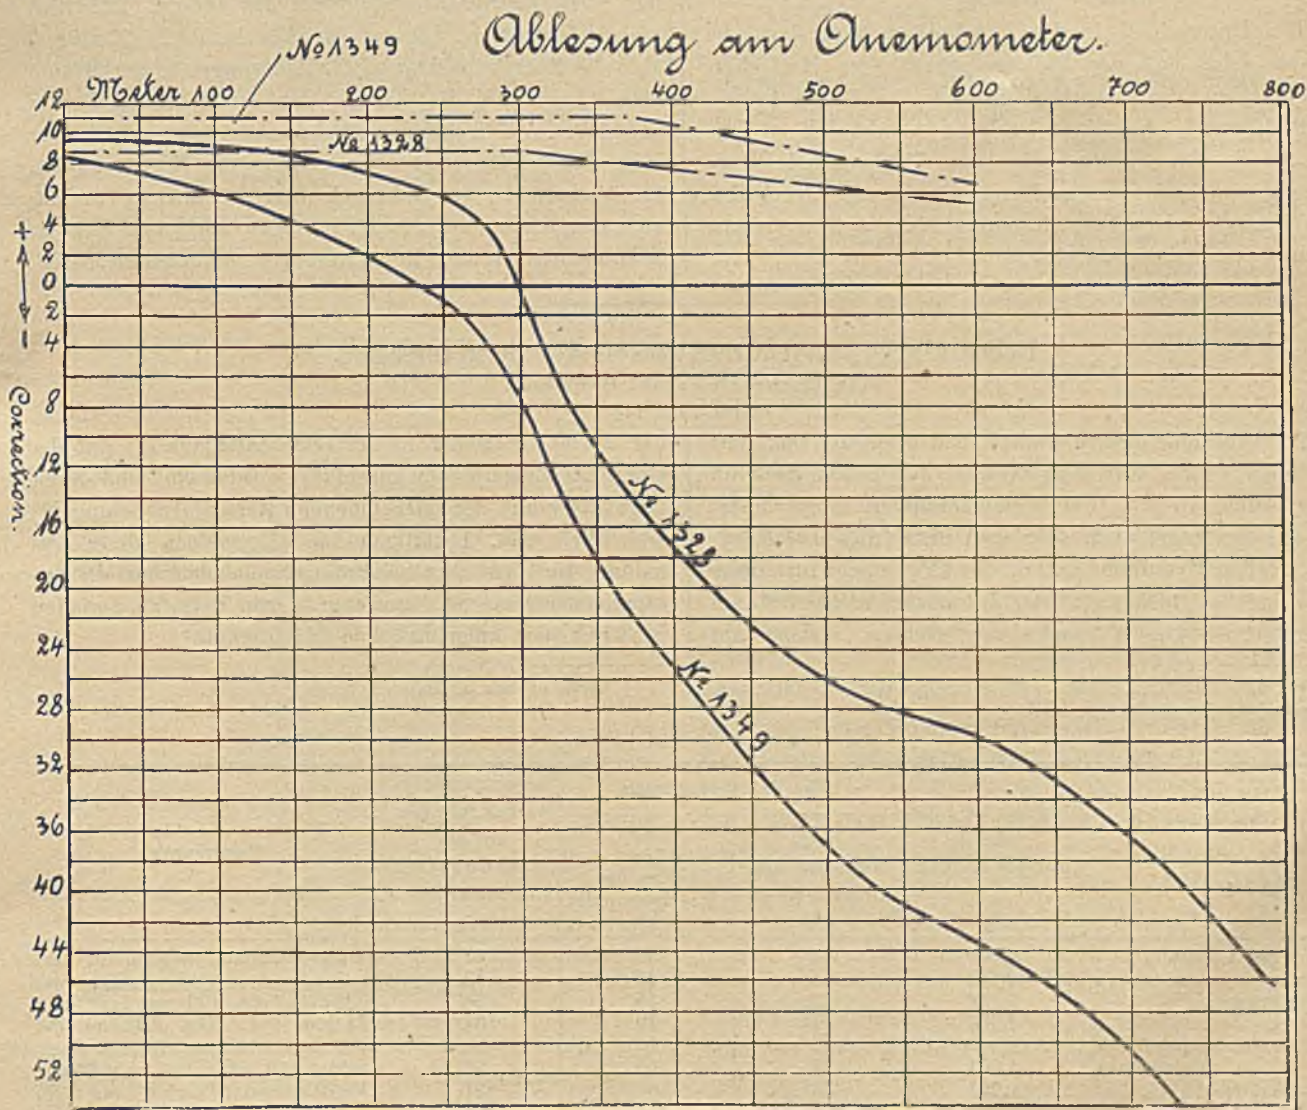 Ablesung am Anemometer.
№1349
Meter 100 200 300 400 500 600 700 800
12
10
8
6
4
2
0
2
4
8
12
16
20
24
28
32
36
40
44
48
52
+
-
Correction
№ 1328
№ 1328
№ 1349